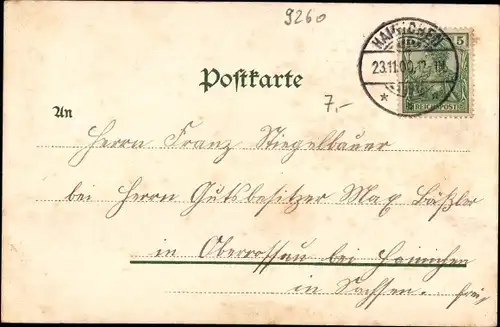 9260
HAINICHEN
23.11.00.12-1N.
5
REICHSPOST
Postkarte
7,-
An
Herrn Franz Stiegelbauer
bei Herrn Gutsbesitzer Max Bäßler
in Oberrossau bei Hainichen
in Sachsen. frei